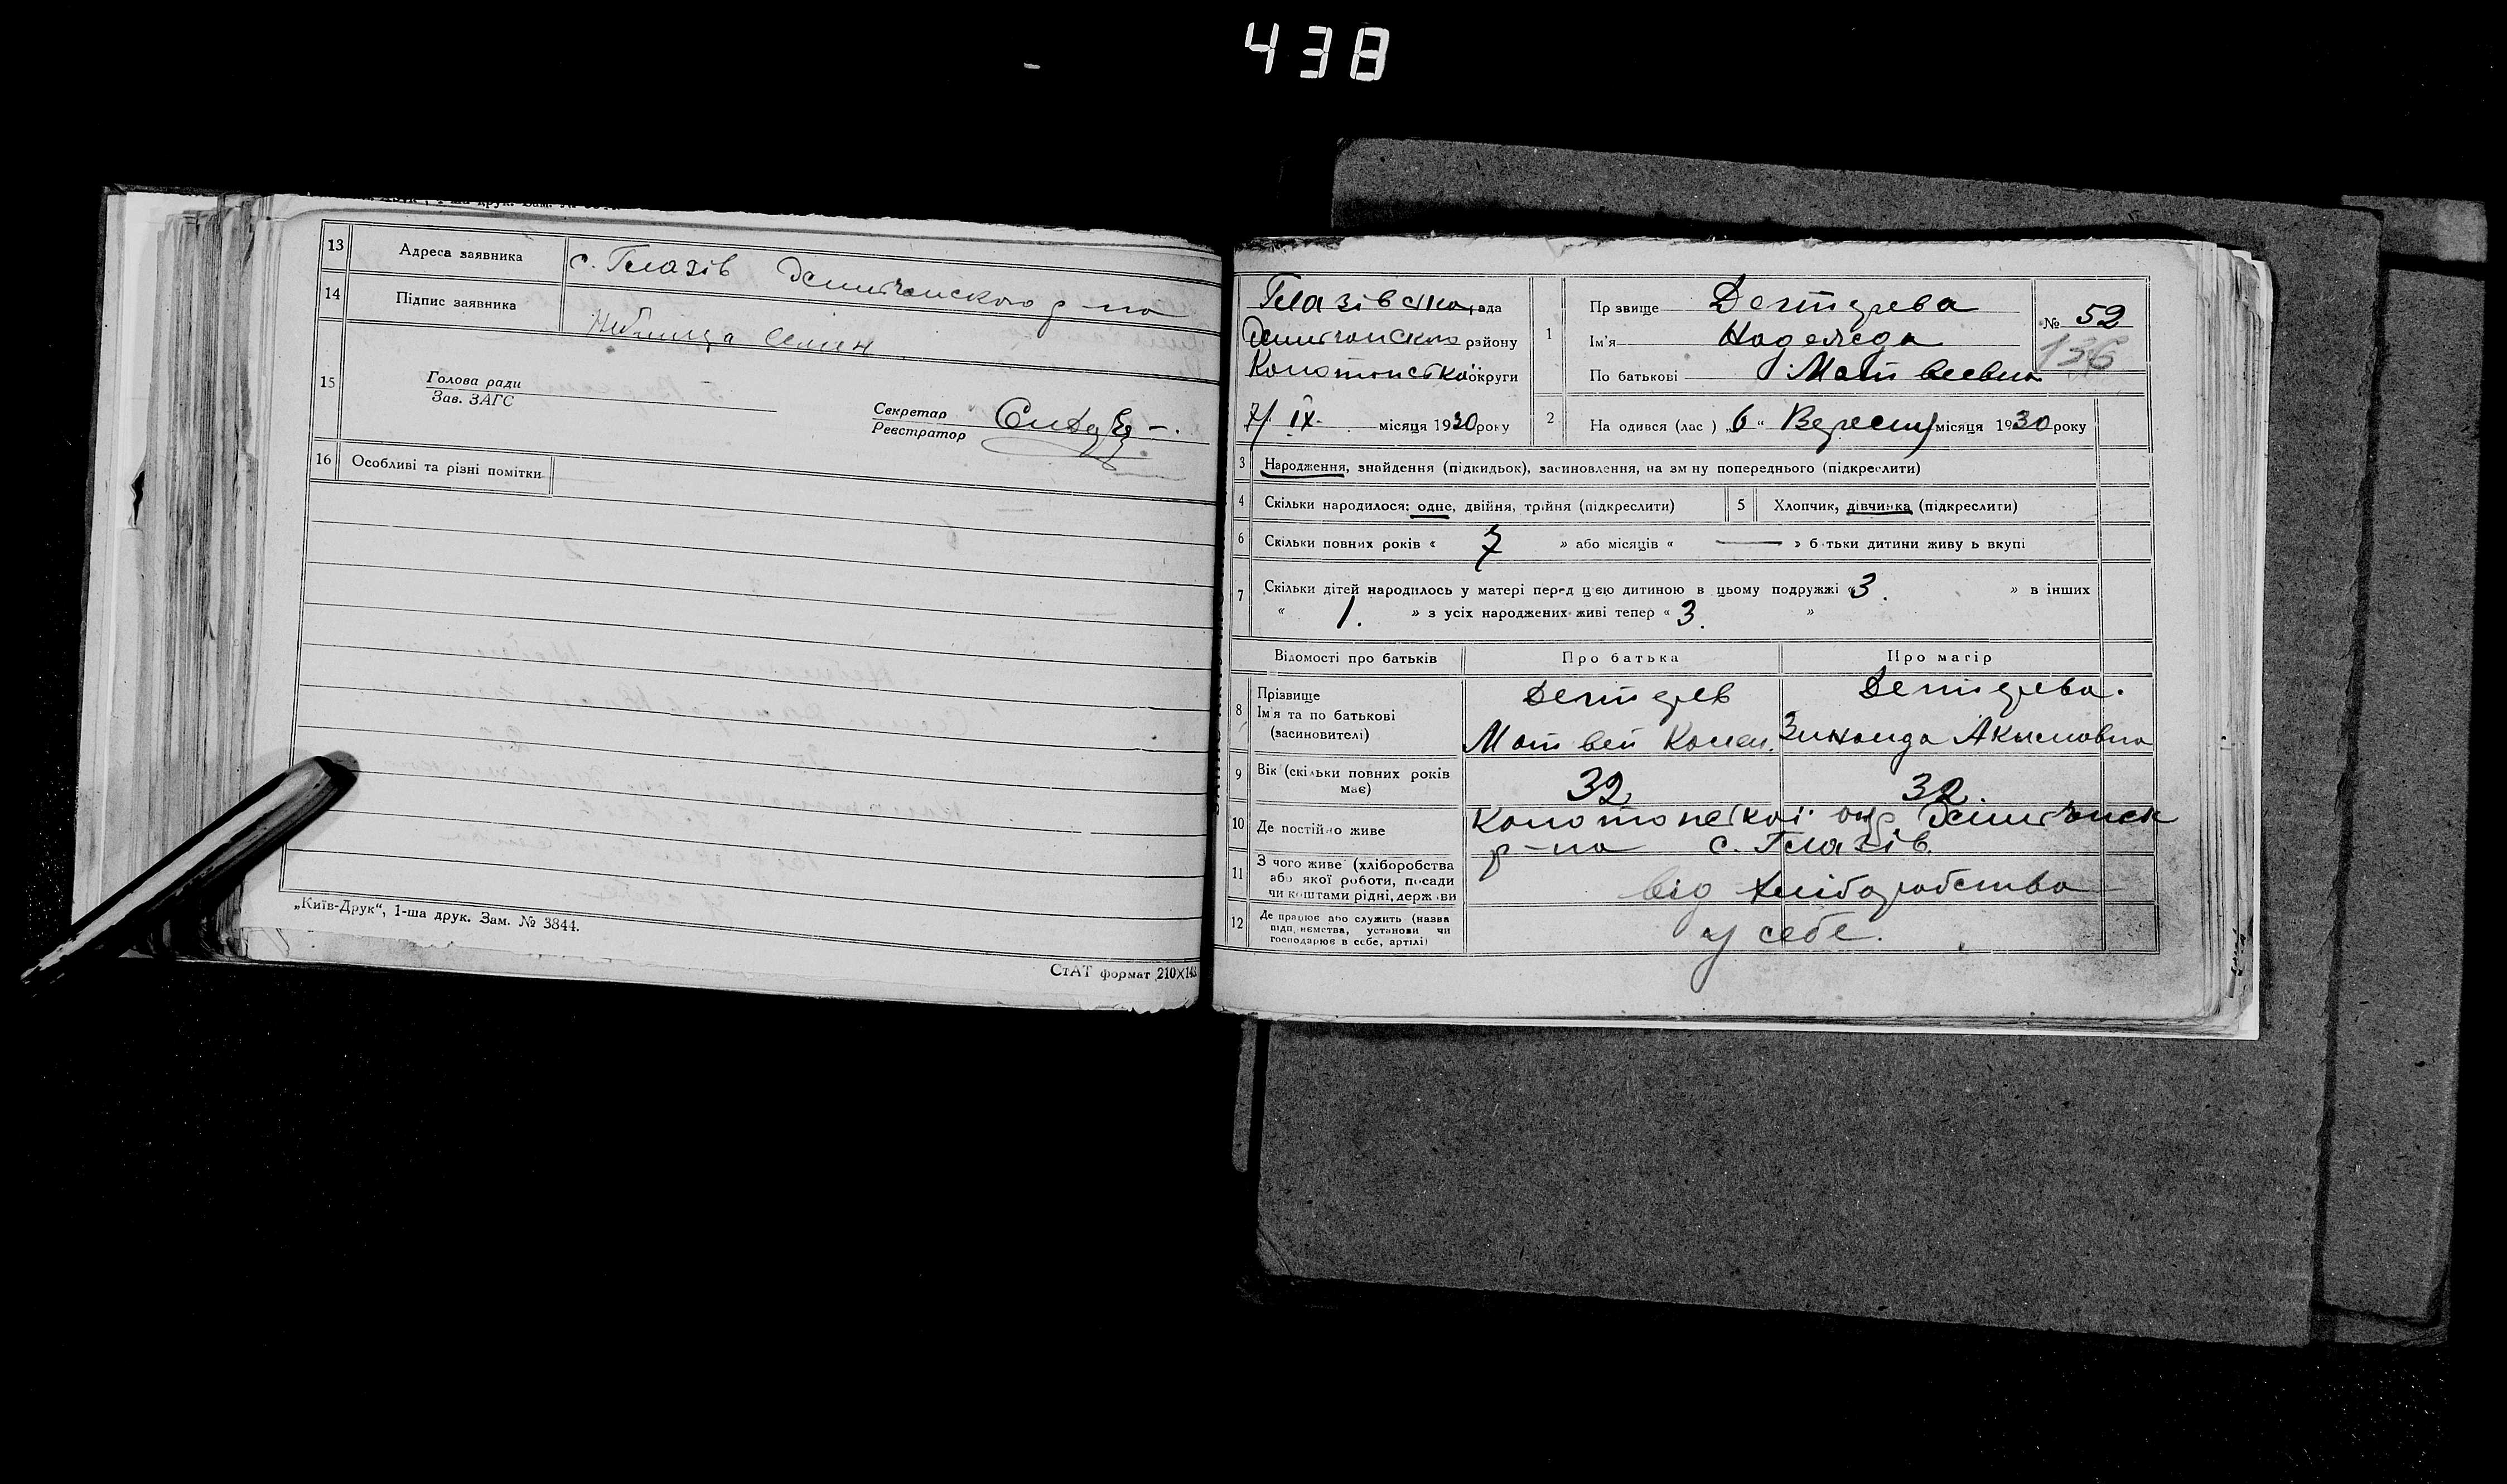 438
13 Адреса заявника с. Глазів р-на
14 Підпис заявника
15 Голова ради
Зав. ЗАГС
Секретар
Реєстратор
16 Особливі та різні помітки
„Київ-Друк“, 1-ша друк. Зам. № 3844.
СтАТ формат 210×14
Глазівська рада
району
Конотопської округи
7/ IX. місяця 1930 року
1 Прзвище
Ім'я Надежда
По батькові Матвеевна
№ 52
136
2 На одився (лас ) „6“ Вересня місяця 1930 року
3 Народження, знайдення (підкидьок), засиновлення, на зм ну попереднього (підкреслити)
4 Скільки народилося: одне, двійня, трійня (підкреслити) 5 Хлопчик, дівчинка (підкреслити)
6 Скільки повних років « 7 » або місяців « — » б тьки дитини живу ь вкупі
7 Скільки дітей народилось у матері перед цією дитиною в цьому подружжі «3. » в інших
« 1. » з усіх народжених живі тепер « 3. »
Відомості про батьків Про батька Про матір
8 Прізвище
Ім'я та по батькові
(засиновителі)
Матвей Зинаида Акимовна
9 Вік (скільки повних років має) 32 32
10 Де постійно живе Конотопської окр
р-на с. Глазів.
11 З чого живе (хліборобства
або якої роботи, посади
чи коштами рідні, держ ви
від хліборобства
12 Де працює або служить (назва
підп иємства, установи чи
господарює в себе, артілі)
у себе.